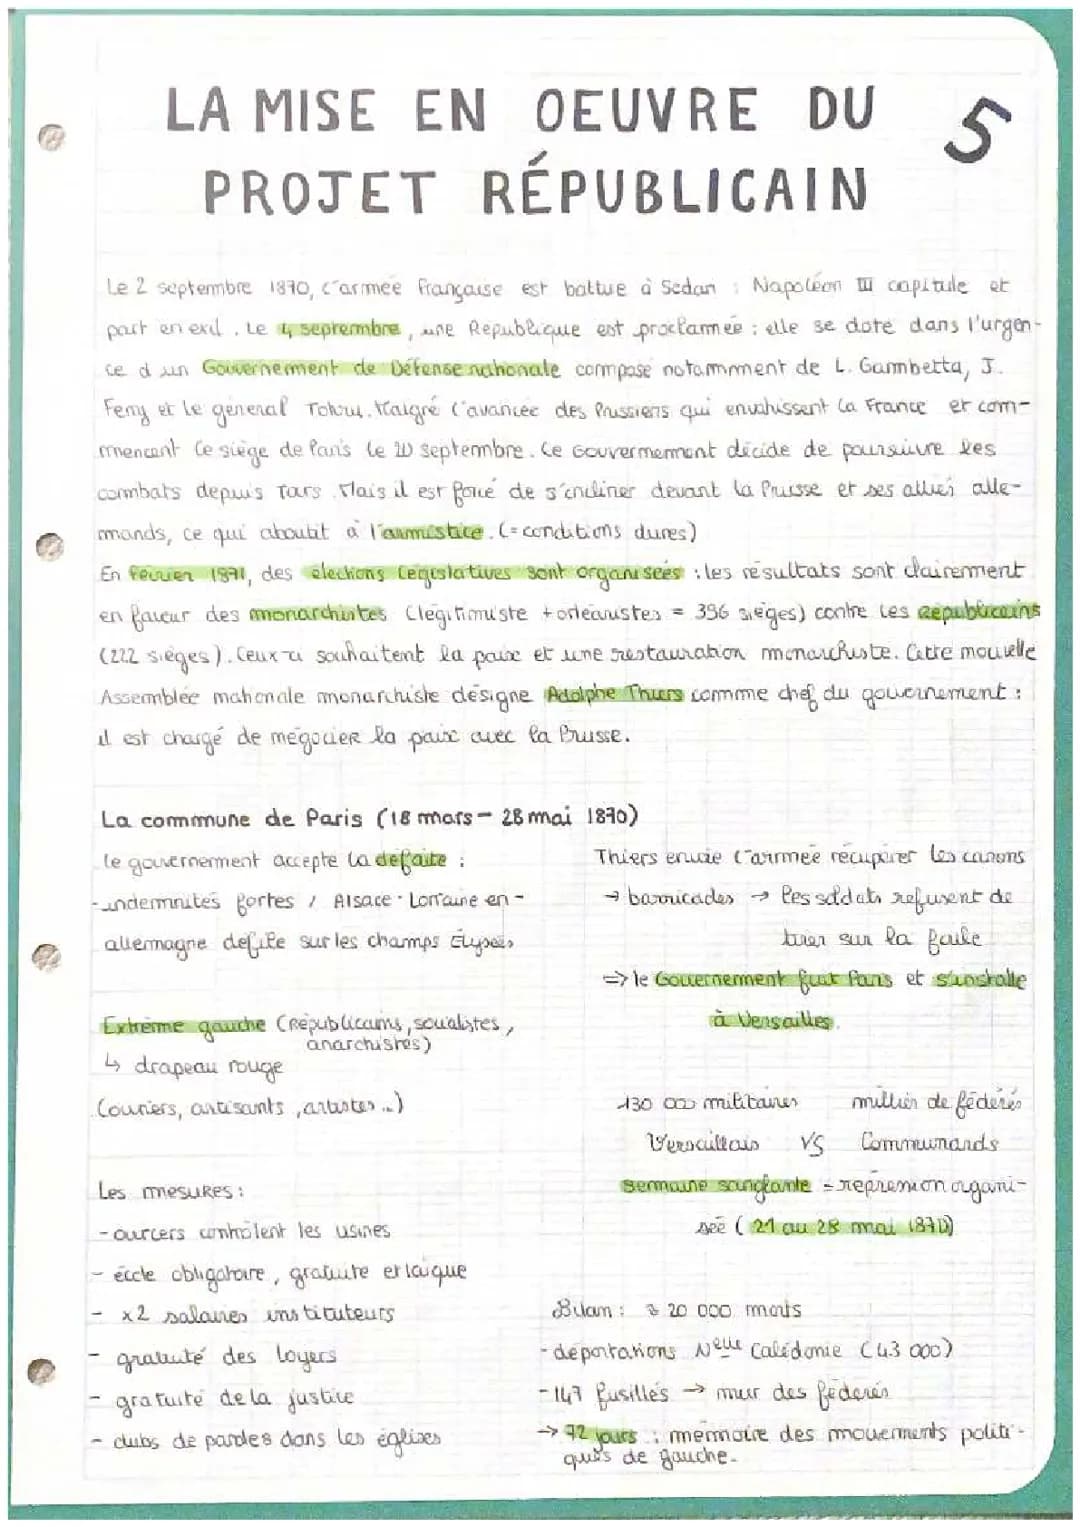 LA MISE EN OEUVRE DU
PROJET RÉPUBLICAIN
5
Le 2 septembre 1870, l'armée française est battue à Sedan : Napoléon III capitule et
part en exil. Le 4 septembre, une République est proclamée : elle se dote dans l'urgen-
ce d'un Gouvernement de Défense nationale composé notamment de L. Gambetta, J.
Ferry et le général Tohru. Malgré l'avancée des Prussiens qui envahissent la France et com-
mencent le siège de Paris le 20 septembre. Le Gouvernement décide de poursuivre les
combats depuis Tars. Mais il est forcé de s'incliner devant la Prusse et ses alliés alle-
mands, ce qui aboutit à l'armistice. (= conditions dures)
En février 1871, des élections législatives sont organisées : les résultats sont clairement
en faveur des monarchistes (légitimiste + orléanistes = 396 sièges) contre les républicains
(222 sièges). Ceux-ci souhaitent la paix et une restauration monarchiste. Cette nouvelle
Assemblée nationale monarchiste désigne Adolphe Thiers comme chef du gouvernement :
il est chargé de négocier la paix avec la Prusse.
La commune de Paris (18 mars - 28 mai 1870)
le gouvernement accepte la défaite :
- indemnités fortes / Alsace-Lorraine en-
allemagne défile sur les champs Élysées
Extrême gauche (républicains, socialistes,
anarchistes)
↳ drapeau rouge
(ouvriers, artisants, artistes...)
Les mesures :
- ourcers contrôlent les usines
- école obligatoire, gratuite et laïque
- x2 salaires instituteurs
- gratuité des loyers
- gratuité de la justice
- clubs de paroles dans les églises
Thiers envoie l'armée récupérer les canons
→ barricades → les soldats refusent de
tirer sur la foule
=> le Gouvernement fuit Paris et s'installe
à Versailles.
130 000 militaires milliers de fédérés
Versaillais VS Communards
Semaine sanglante = répression organi-
sée (21 au 28 mai 1870)
Bilan : ≈ 20 000 morts
- déportations Nelle Calédonie (43 000)
- 147 fusillés → mur des fédérés
→ 72 jours : mémoire des mouvements politi-
ques de gauche.